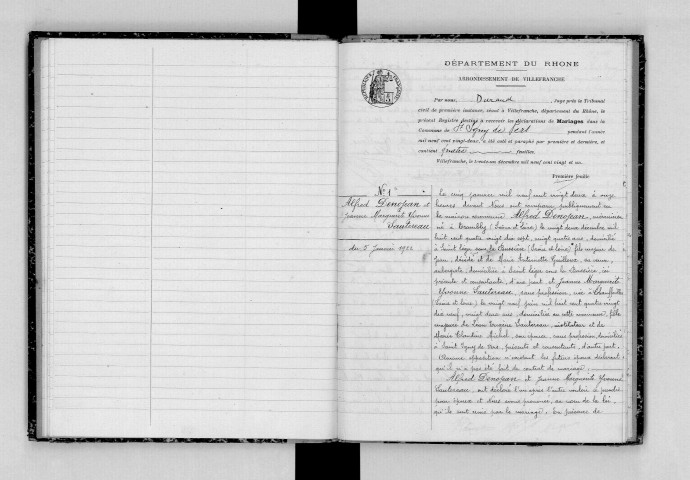 DÉPARTEMENT DU RHONE
ARRONDISSEMENT DE VILLEFRANCHE
Par nous, Durand, Juge près le Tribunal
civil de première instance, séant à Villefranche, département du Rhône, le
présent Registre destiné à recevoir les déclarations de Mariages dans la
Commune de St Igny de Vers pendant l'année
mil neuf cent vingt-deux, a été coté et paraphé par première et dernière, et
contient feuilles.
Villefranche, le trente-un décembre mil neuf cent vingt et un.
Première feuille
N° 1
Alfred Denojean et
Jeanne Marguerite Yvonne
Sautereau
du 5 Janvier 1922
Le cinq janvier mil neuf cent vingt deux à onze
heures devant Nous ont comparu publiquement en
la maison commune Alfred Denojean,
né à (Saône et Loire) le vingt deux décembre mil
huit cent quatre vingt dix sept, vingt quatre ans, domicilié
à Saint Léger sous la Bussière (Saône et Loire) fils majeur de
décédé et de Marie Antoinette sa veuve,
aubergiste, domiciliée à Saint Léger sous la Bussière, ici
présente et consentante, d'une part et Jeanne Marguerite
Yvonne Sautereau, sans profession, née à Chauffailles
(Saône et Loire) le vingt neuf juin mil huit cent quatre vingt
dix neuf, vingt deux ans, domiciliée en cette commune, fille
majeure de Sautereau, instituteur et de
Marie Claudine Michel, son épouse, sans profession, domiciliés
à Saint Igny de Vers, présents et consentants, d'autre part.
Aucune opposition n'existant les futurs époux déclarent
qu'il n'a pas été fait de contrat de mariage.
Alfred Denojean et Jeanne Marguerite Yvonne
Sautereau, ont déclaré l'un après l'autre vouloir se prendre
pour époux et Nous avons prononcé, au nom de la loi,
qu'ils sont unis par le mariage. En présence de